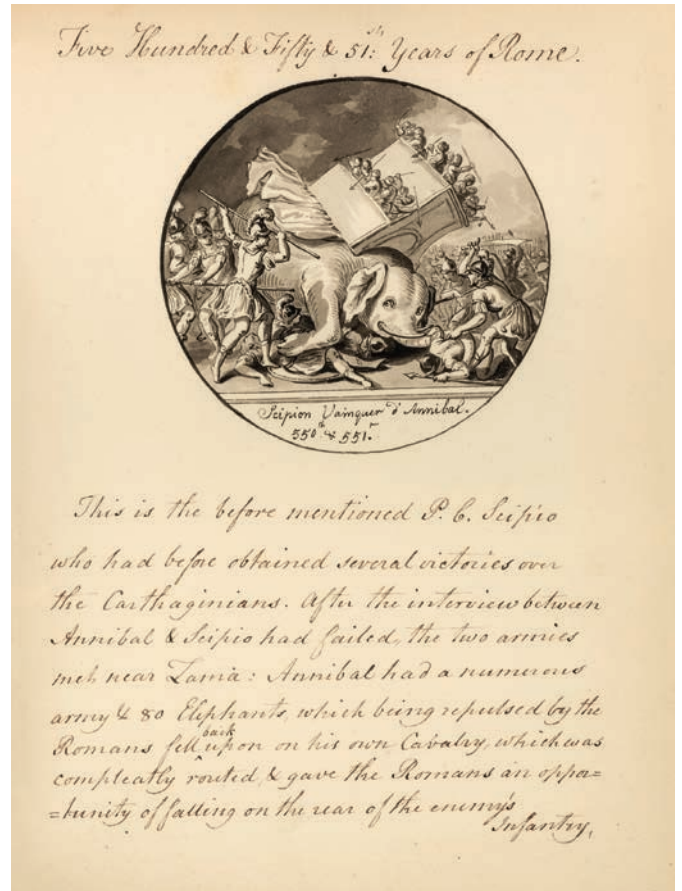 Five Hundred & Fifty & 51:st Years of Rome.
Scipion Vainquer d'Annibal.
550.e & 551.r
This is the before mentioned P. C. Scipio
who had before obtained several victories over
the Carthaginians. After the interview between
Annibal & Scipio had failed, the two armies
met near Zama: Annibal had a numerous
army & 80 Elephants, which being repulsed by the
Romans fell back upon on his own Cavalry, which was
compleatly routed, & gave the Romans an oppor=
=tunity of falling on the rear of the enemy's
Infantry,